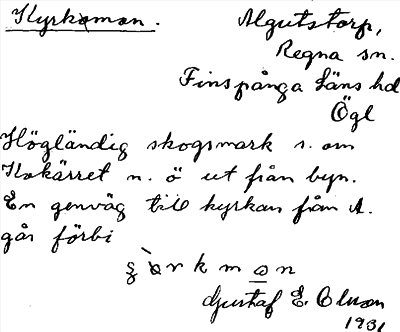 Kyrkomon.
Algutstorp,
Regna sn.
Finspånga läns hd
Ögl
Högländig skogsmark s. om
Kokärret n. ö ut från byn.
En genväg till kyrkan från A.
går förbi
Gustaf E. Olsson
1931